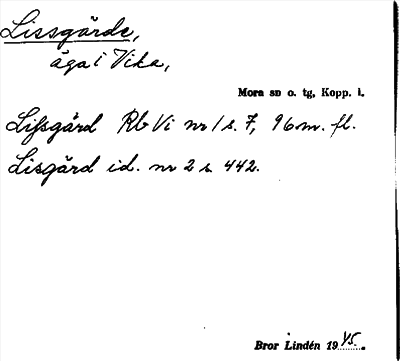 Lissgärde,
äga i Vika,
Mora sn o. tg, Kopp. l.
Lifsgärd Rb Vi nr 1 s. 7, 96 m. fl.
Lisgärd id. nr 2 s. 442.
Bror Lindén 1945.